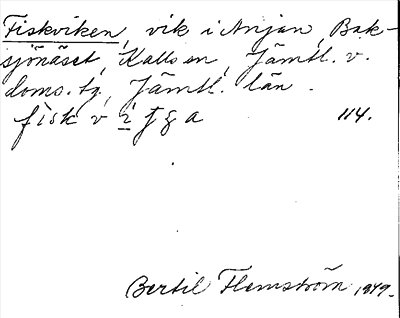 Fiskviken, vik i Anjan, Bak-
sjönäset, Kalls sn, Jämtl. v.
doms. tg, Jämtl. län.
fisk v i 114.
Bertil Flemström 1949.